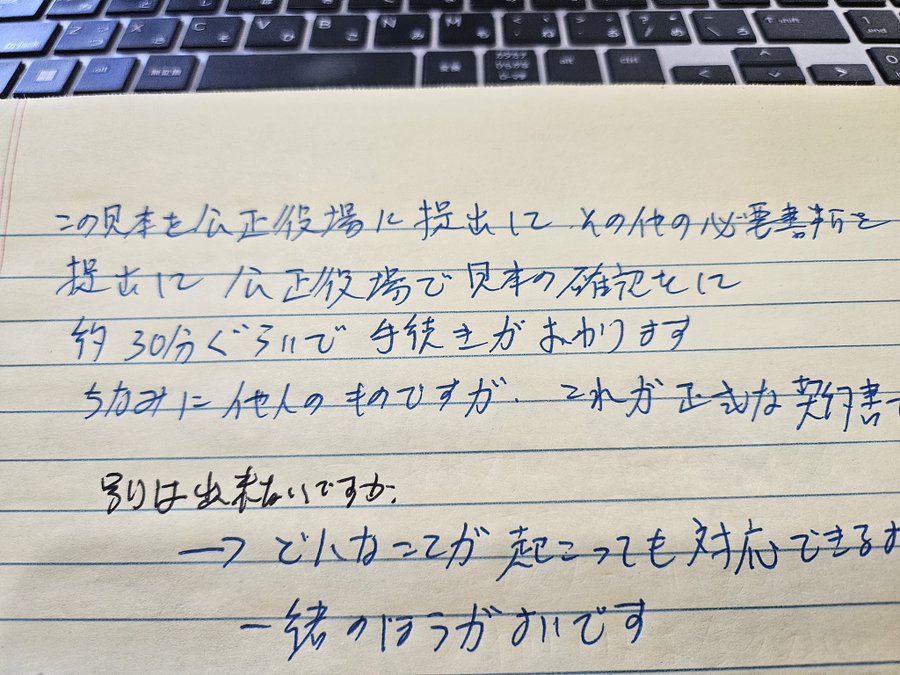 Z X C V B N M
alt 無変換 変換 カタカナ ひらがな ローマ字 alt ctrl
この見本を公正役場に提出して その他の必要書折を
提出して 公正役場で見本の確認をして
約30分ぐらいで 手続きがおわります
ちなみに他人のものですが、これが正式な契約書で
別は出来ないですか。
→ どんなことが起こっても対応できるよ
一緒のほうがよいです